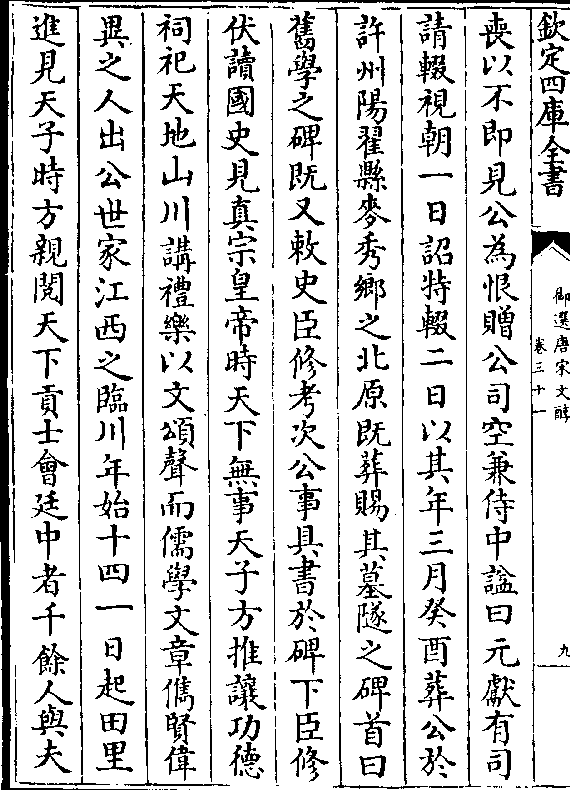 欽定四庫全書
御選唐宋文醇
卷三十一
九
喪以不即見公為恨贈公司空兼侍中諡曰元獻有司
請輟視朝一日詔特輟二日以其年三月癸酉葬公於
許州陽翟縣麥秀鄉之北原既葬賜其墓隧之碑首曰
舊學之碑既又敕史臣修考次公事具書於碑下臣修
伏讀國史見真宗皇帝時天下無事天子方推讓功德
祠祀天地山川講禮樂以文頌聲而儒學文章儁賢偉
異之人出公世家江西之臨川年始十四一日起田里
進見天子時方親閱天下貢士會廷中者千餘人與夫